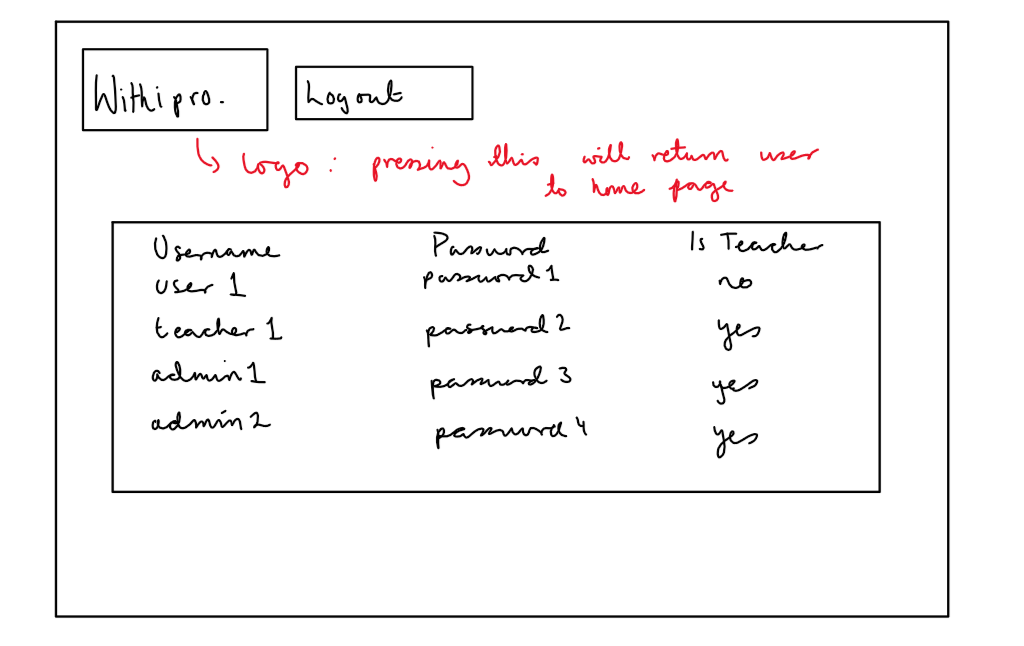 Withipro.
Logout
↳ Logo : pressing this will return user
to home page
Username Password Is Teacher
user 1 password 1 no
teacher 1 password 2 yes
admin 1 password 3 yes
admin 2 password 4 yes